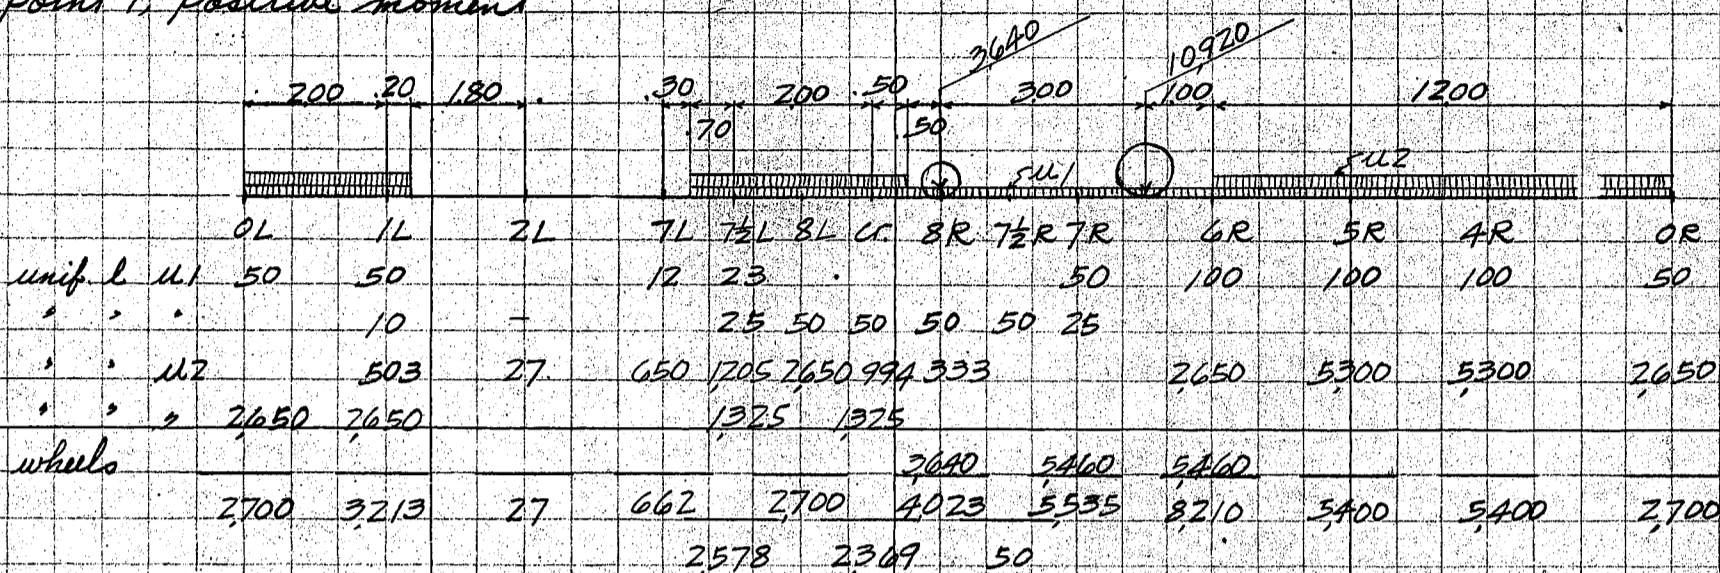 point 1, positive moment
3640 10,920
2.00 .20 1.80 .30 2.00 .50 3.00 1.00 12.00
.70 .50
u1 u2
0L 1L 2L 7L 7½L 8L Cr. 8R 7½R 7R 6R 5R 4R 0R
unif. l u1 50 50 12 23 50 100 100 100 50
" " " 10 - 25 50 50 50 50 25
" " u2 503 27 650 1,205 2,650 994 333 2,650 5,300 5,300 2,650
" " " 2,650 2,650 1,325 1,325
wheels 3,640 5,460 5,460
2,700 3,213 27 662 2,700 4,023 5,535 8,210 5,400 5,400 2,700
2,578 2,369 50